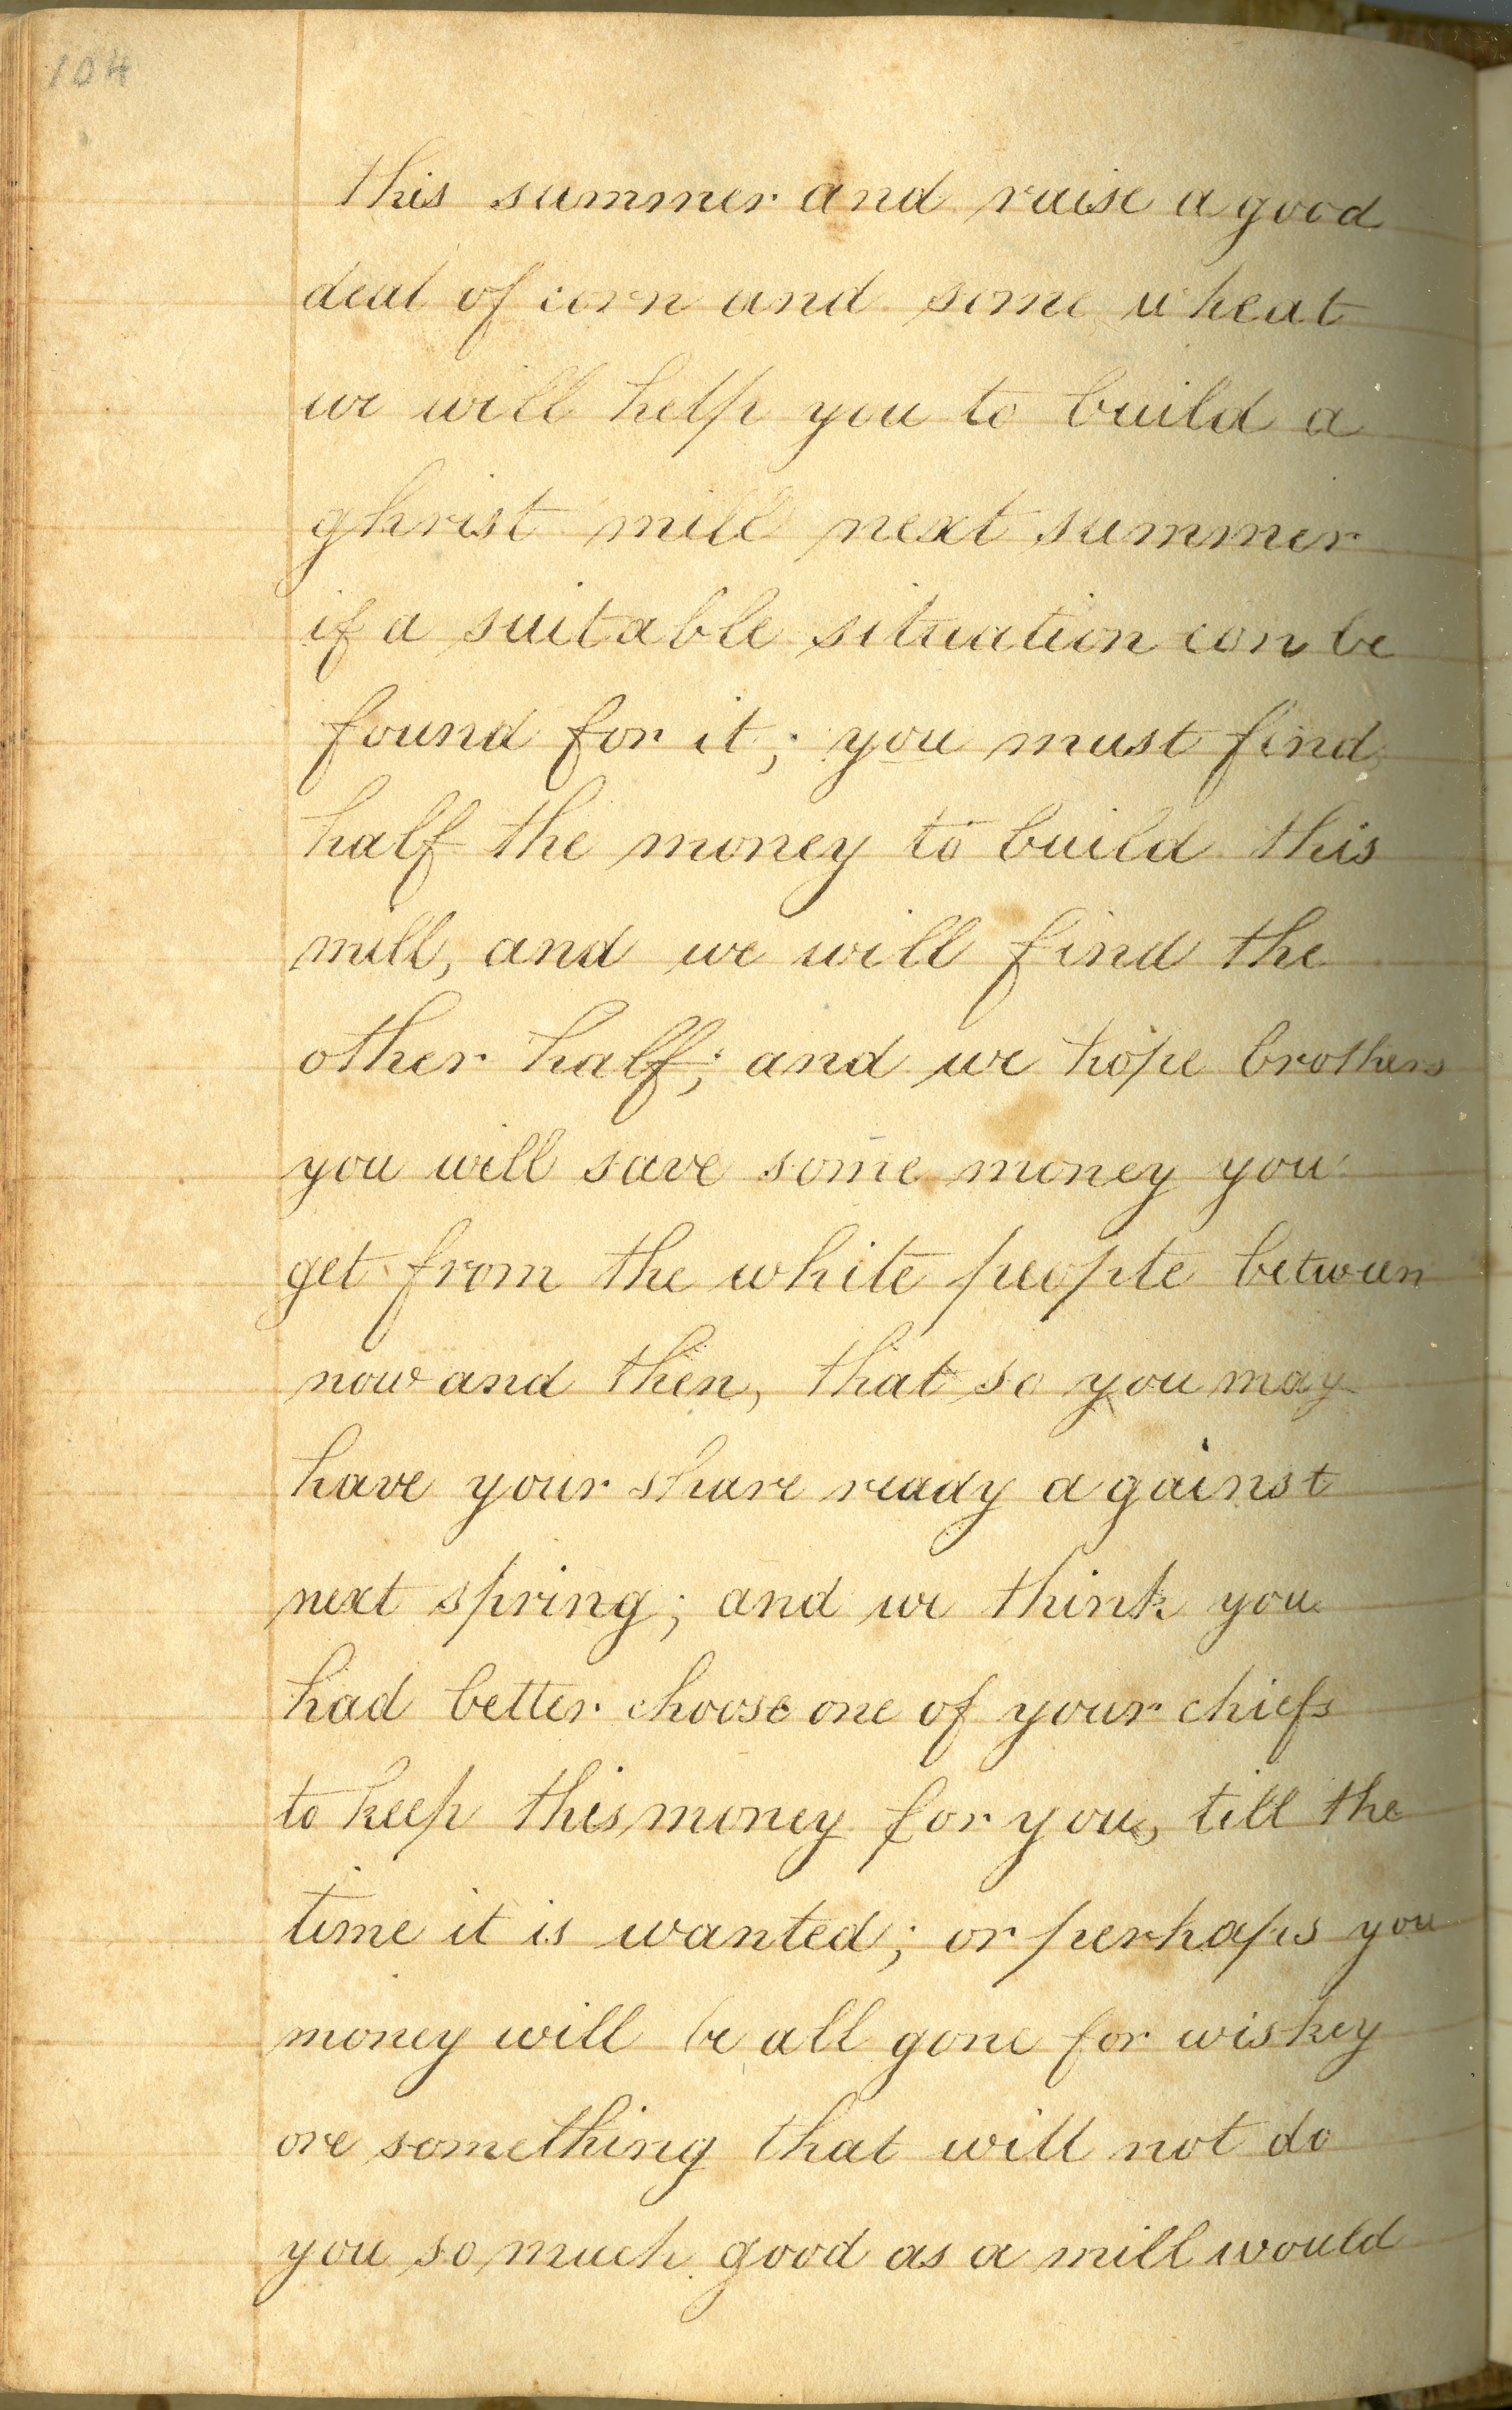 104
this summer and raise a good
deal of corn and some wheat
we will help you to build a
ghrist mill next summer
if a suitable situation can be
found for it; you must find
half the money to build this
mill, and we will find the
other half; and we hope brothers
you will save some money you
get from the white people between
now and then, that so you may
have your share ready against
next spring; and we think you
had better choose one of your chiefs
to keep this money for you, till the
time it is wanted; or perhaps you
money will be all gone for wiskey
ore something that will not do
you so much good as a mill would